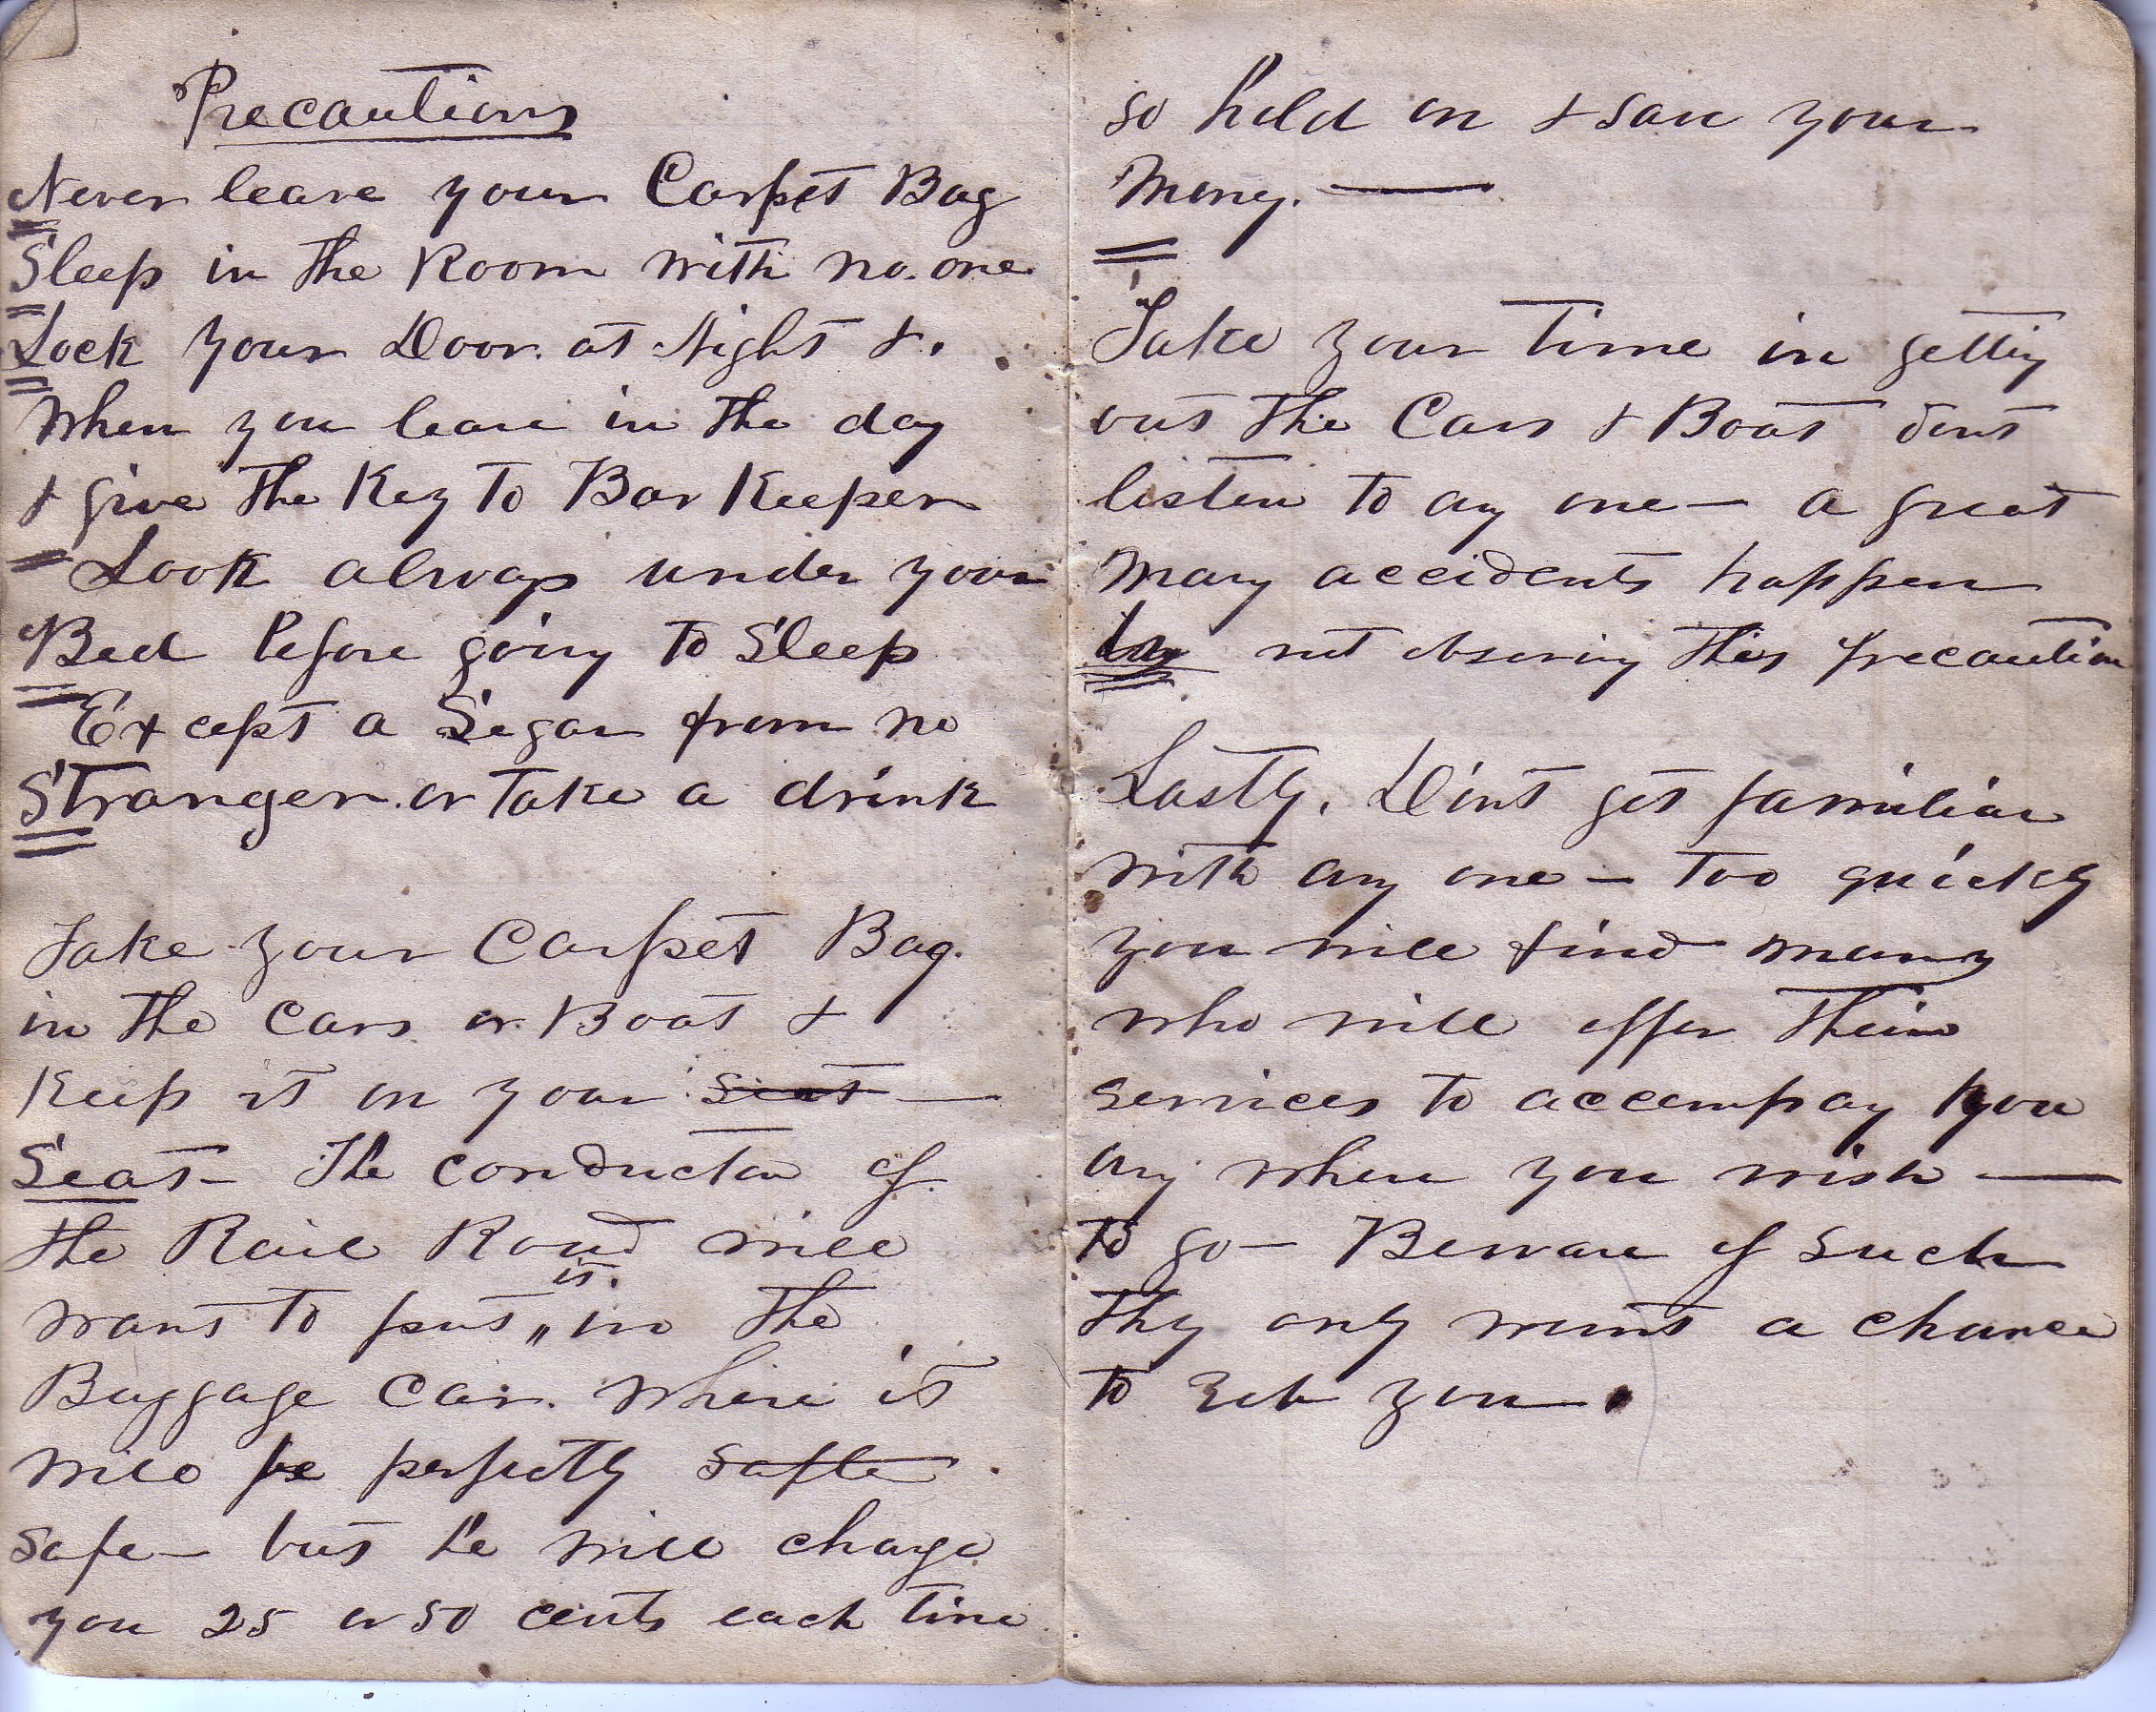 Precautions
Never leave your Carpet Bag
Sleep in the Room with no one
Lock your Door at Night &
When you leave in the day
& give the Key to Bar Keeper
Look always under your
Bed before going to Sleep
Except a Segar from no
Stranger or take a drink
Take your Carpet Bag.
in the Cars or Boat &
Keep it on your seat —
Seat — The conductor of
the Rail Road will
it.
want to put " in the
Baggage Car. Where it
will be perfectly safte
safe — but he will charge
you 25 or 50 cents each time
so hold on & save your
Money. —
Take your time in getting
out the Cars & Boat dont
listen to any one — a great
many accidents happen
by not observing this precaution
Lastly. Dont get familiar
with any one — too quickly
you will find many
who will offer their
services to accompany you
any where you wish —
to go — Beware of such
They only want a chance
to rob you.